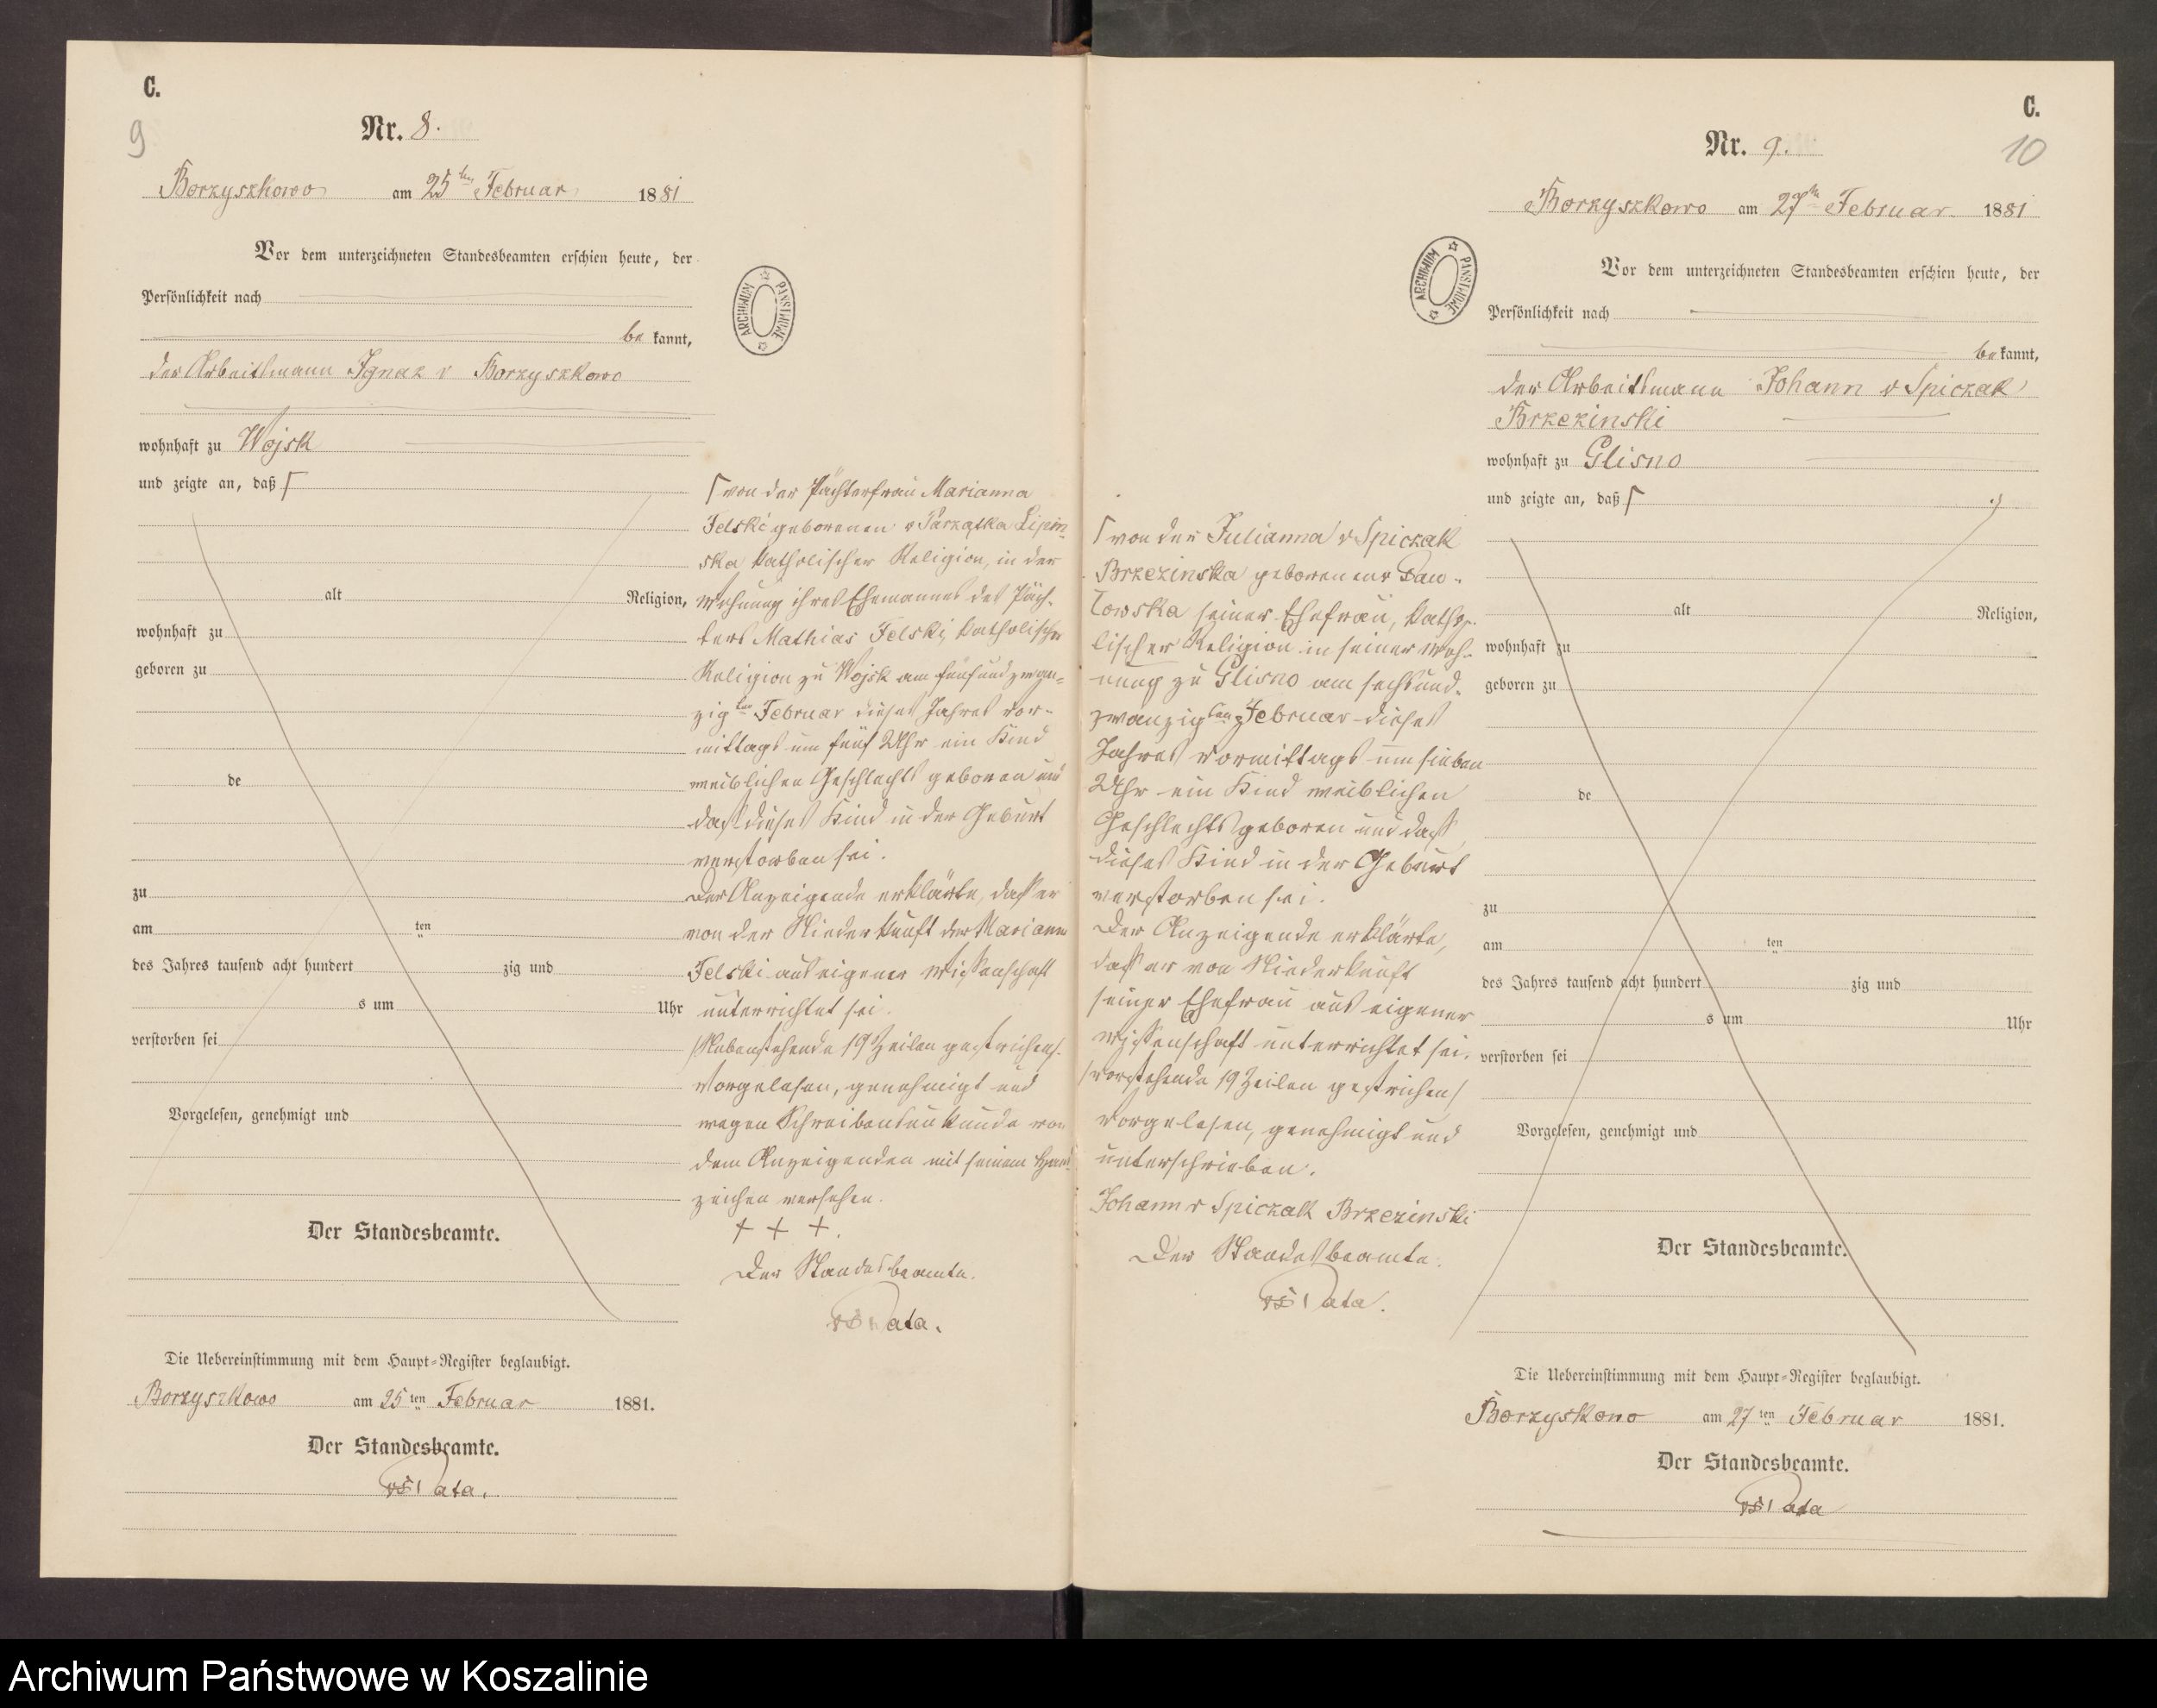 C.
9
Nr. 8.
Borzyszkowo am 25ten Februar 1881
Vor dem unterzeichneten Standesbeamten erschien heute, der
Persönlichkeit nach
be kannt,
der Arbeitsmann Ignaz v Borzyszkowo
wohnhaft zu Wojsk
und zeigte an, daß ⌈
alt Religion,
wohnhaft zu
geboren zu
de
zu
am ten
des Jahres tausend acht hundert zig und
s um Uhr
verstorben sei
Vorgelesen, genehmigt und
Der Standesbeamte.
⌈ von der Pächterfrau Marianna
Felski geborenen v Parzatka Lipin-
ska katholischer Religion, in der
Wohnung ihres Ehemannes des Päch-
ters Mathias Felski, katholischer
Religion zu Wojsk am fünfundzwan-
zigten Februar dieses Jahres vor-
mittags um fünf Uhr ein Kind
weiblichen Geschlechts geboren und
daß dieses Kind in der Geburt
verstorben sei.
Der Anzeigende erklärte, daß er
von der Niederkunft der Marianna
Felski aus eigener Wissenschaft
unterrichtet sei.
/Nebenstehende 19 Zeilen gestrichen/.
Vorgelesen, genehmigt und
wegen Schreibensunkunde von
dem Anzeigenden mit seinem Hand-
zeichen versehen.
+ + +.
Der Standesbeamte.
Pata.
Die Uebereinstimmung mit dem Haupt-Register beglaubigt.
Borzyszkowo am 25ten Februar 1881.
Der Standesbeamte.
Pata.
C.
10
Nr. 9.
Borzyszkowo am 27ten Februar 1881
Vor dem unterzeichneten Standesbeamten erschien heute, der
Persönlichkeit nach
be kannt,
der Arbeitsmann Johann v Spiczak
Brzezinski
wohnhaft zu Glisno
und zeigte an, daß ⌈
alt Religion,
wohnhaft zu
geboren zu
de
zu
am ten
des Jahres tausend acht hundert zig und
s um Uhr
verstorben sei
Vorgelesen, genehmigt und
Der Standesbeamte.
⌈ von der Julianna v Spiczak
Brzezinska geborenen v Paw-
lowska seiner Ehefrau, katho-
lischer Religion in seiner Woh-
nung zu Glisno am sechsund-
zwanzigten Februar dieses
Jahres Vormittags um sieben
Uhr ein Kind weiblichen
Geschlechts geboren und daß
dieses Kind in der Geburt
verstorben sei.
Der Anzeigende erklärte,
daß er von Niederkunft
seiner Ehefrau aus eigener
Wissenschaft unterrichtet sei.
/Vorstehende 19 Zeilen gestrichen/
Vorgelesen, genehmigt und
unterschrieben.
Johann v Spiczak Brzezinski
Der Standesbeamte.
Pata.
Die Uebereinstimmung mit dem Haupt-Register beglaubigt.
Borzyskowo am 27ten Februar 1881.
Der Standesbeamte.
Pata
ARCHIWUM PAŃSTWOWE
ARCHIWUM PAŃSTWOWE
Archiwum Państwowe w Koszalinie